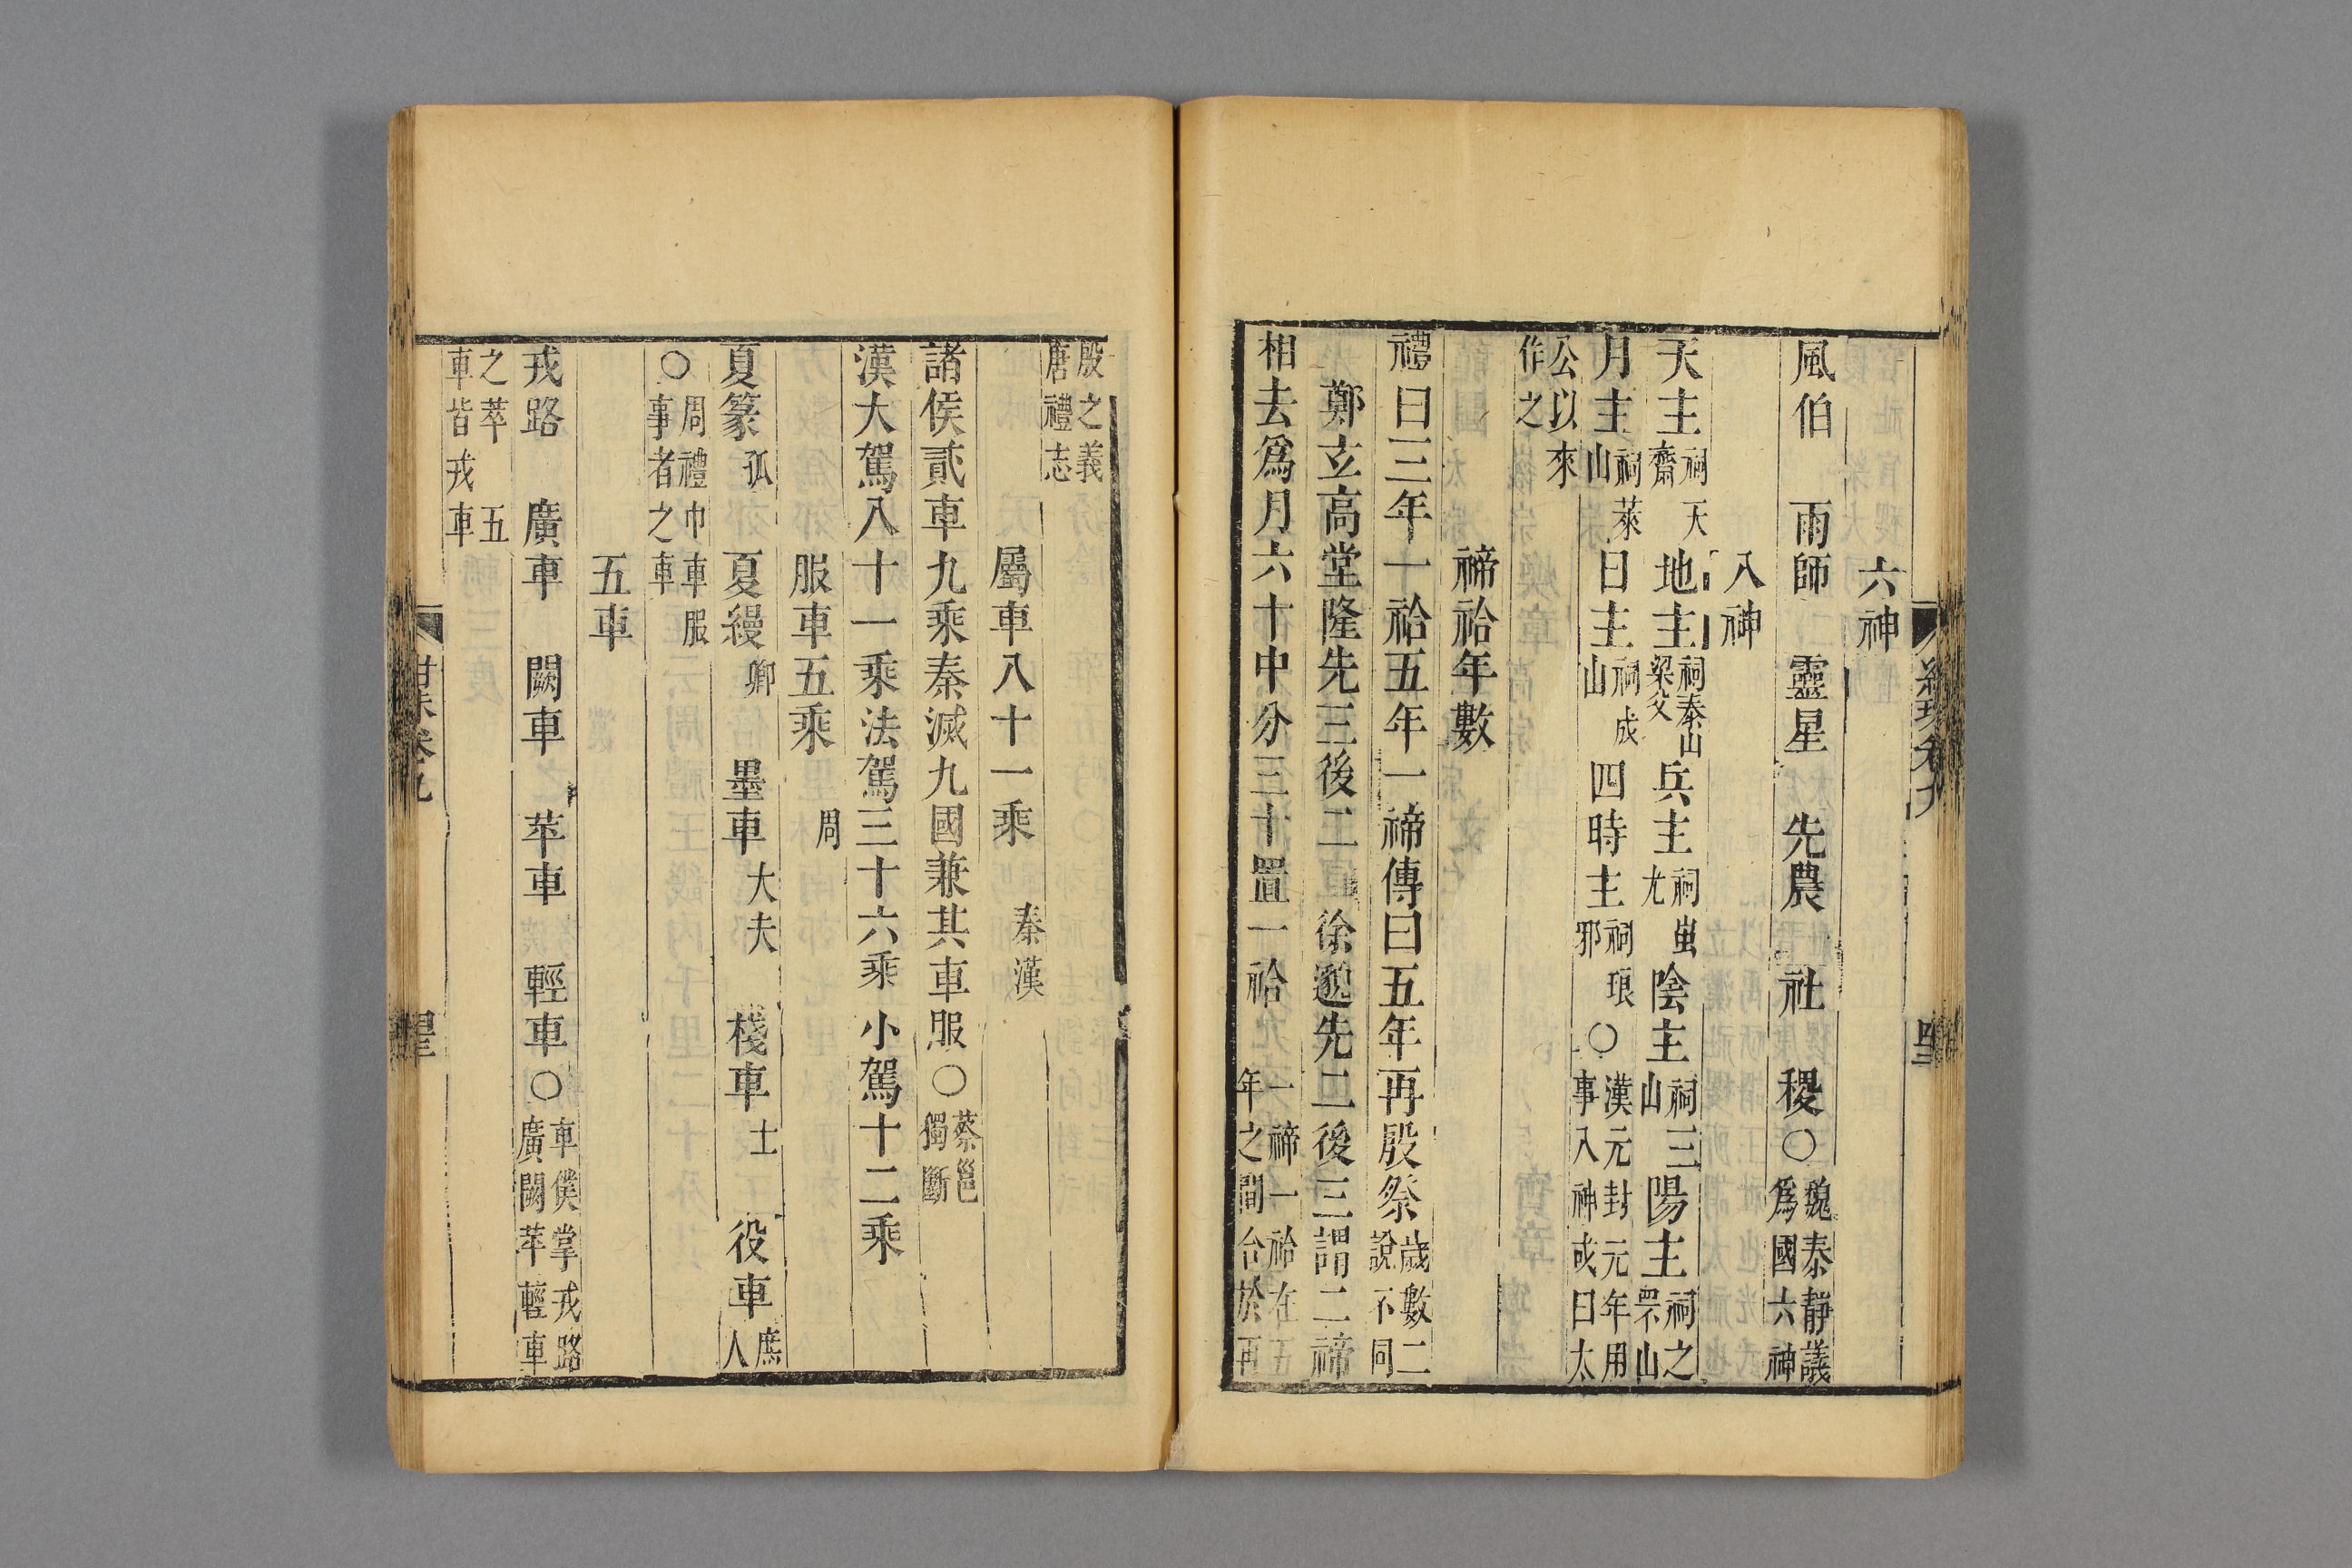 六神
風伯　雨師　靈星　先農　社　稷○魏秦靜議爲國六神
八神
天主祠天齋　地主祠泰山梁父　兵主祠蚩尤　陰主祠三山　陽主祠之罘山
月主祠萊山　日主祠成山　四時主祠琅邪　○漢元封元年用事八神或曰太
公以來作之
禘祫年數
禮曰三年一祫五年一禘傳曰五年再殷祭歲數二說不同
鄭玄高堂隆先三後二徐邈先二後三謂二禘
相去爲月六十中分三十置一祫一禘一祫在五年之間合於再
殷之義唐禮志
屬車八十一乘秦漢
諸侯貳車九乘秦滅九國兼其車服○蔡邕獨斷
漢大駕八十一乘法駕三十六乘小駕十二乘
服車五乘周
夏篆孤　夏縵卿　墨車大夫　棧車士　役車庶人
○周禮巾車服事者之車
五車
戎路　廣車　闕車　苹車　輕車○車僕掌戎路廣闕苹輕車
之萃五車皆戎車